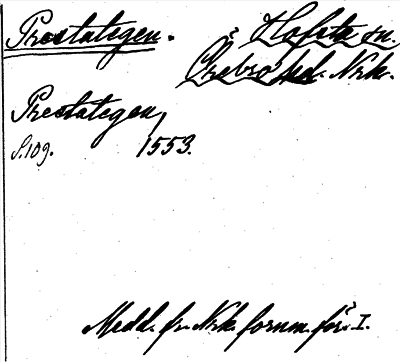 Prestategen. i Hofsta sn.
Örebro hd. Nrk.
Prestategen,
S. 109. 1553.
Medd. fr. Nrk. fornm. för. I.